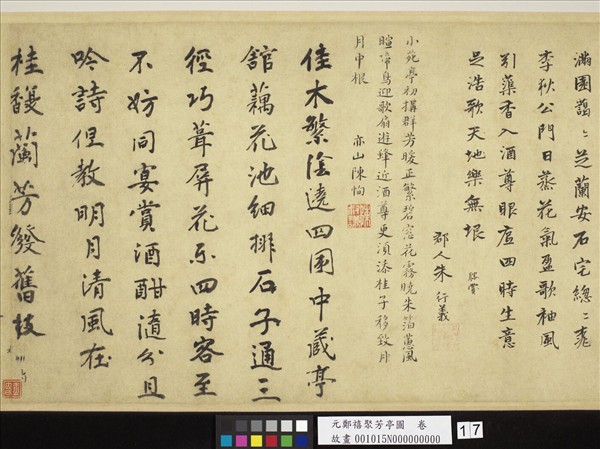 滿園藹ゝ芝蘭安石宅總ゝ桃
李狄公門日蒸花氣盈歌袖風
引藻香入酒尊眼底四時生意
足浩歌天地樂無垠
郡人朱 行義
小苑亭初搆群芳暖正繁碧窓花霧曉朱箔蕙風
暄啼鳥迎歌扇遊蜂近酒尊更須添桂子移致
月中根
亦山陳恂
佳木繁陰遶四圍中藏亭
舘藕花池細排石子通三
徑巧葺屏花四時客至
不妨同宴賞酒酣隨分且
吟詩但教明月清風在
桂馥蘭芳發舊枝
元鄭禧聚芳亭圖 卷
故畫 001015N000000000
17